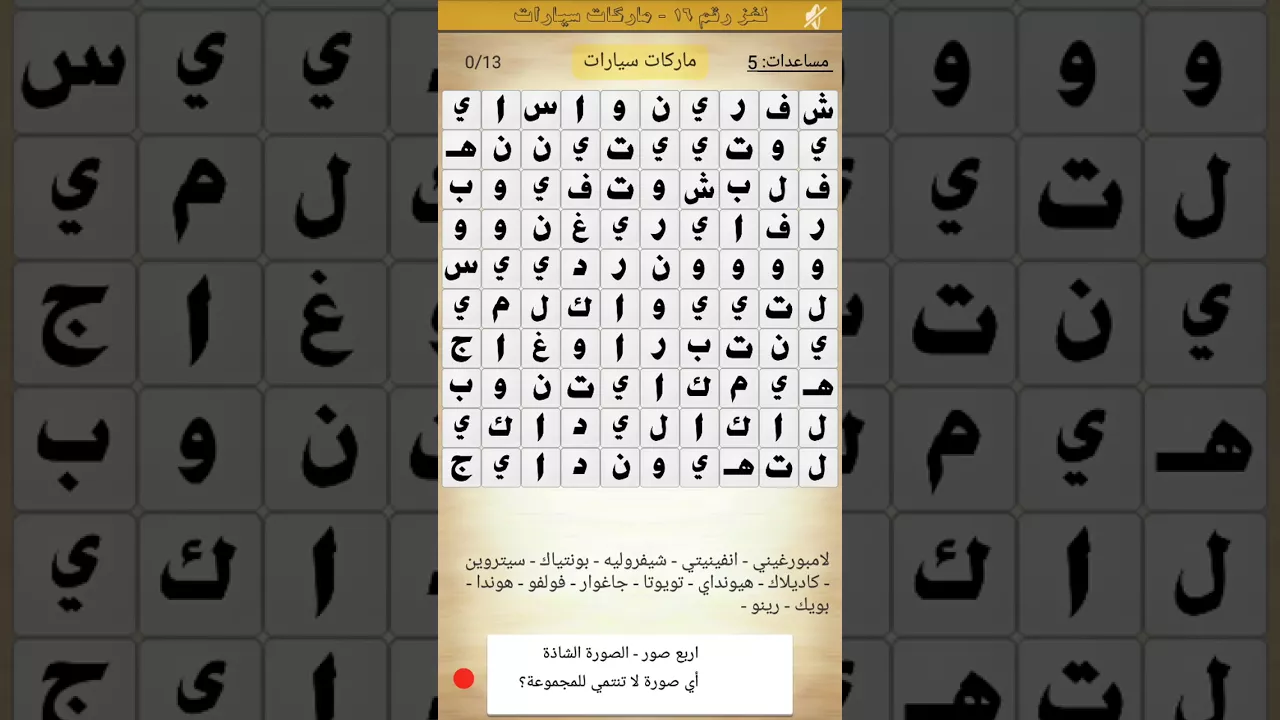 لغز رقم ١٦ - ماركات سيارات
مساعدات: 5
ماركات سيارات
0/13
ش ف ر ي ن و ا س ا ي
ي و ت ي ي ت ي ن ن هـ
ف ل ب ش و ت ف ي و ب
ر ف ا ي ر ي غ ن و و
و و و و ن ر د ي ي س
ل ت ي ي و ا ك ل م ي
ي ن ت ب ر ا و غ ا ج
هـ ي م ك ا ي ت ن و ب
ل ا ك ا ل ي د ا ك ي
ل ت هـ ي و ن د ا ي ج
لامبورغيني - انفينيتي - شيفروليه - بونتياك - سيتروين
- كاديلاك - هيونداي - تويوتا - جاغوار - فولفو - هوندا -
بويك - رينو -
اربع صور - الصورة الشاذة
أي صورة لا تنتمي للمجموعة؟